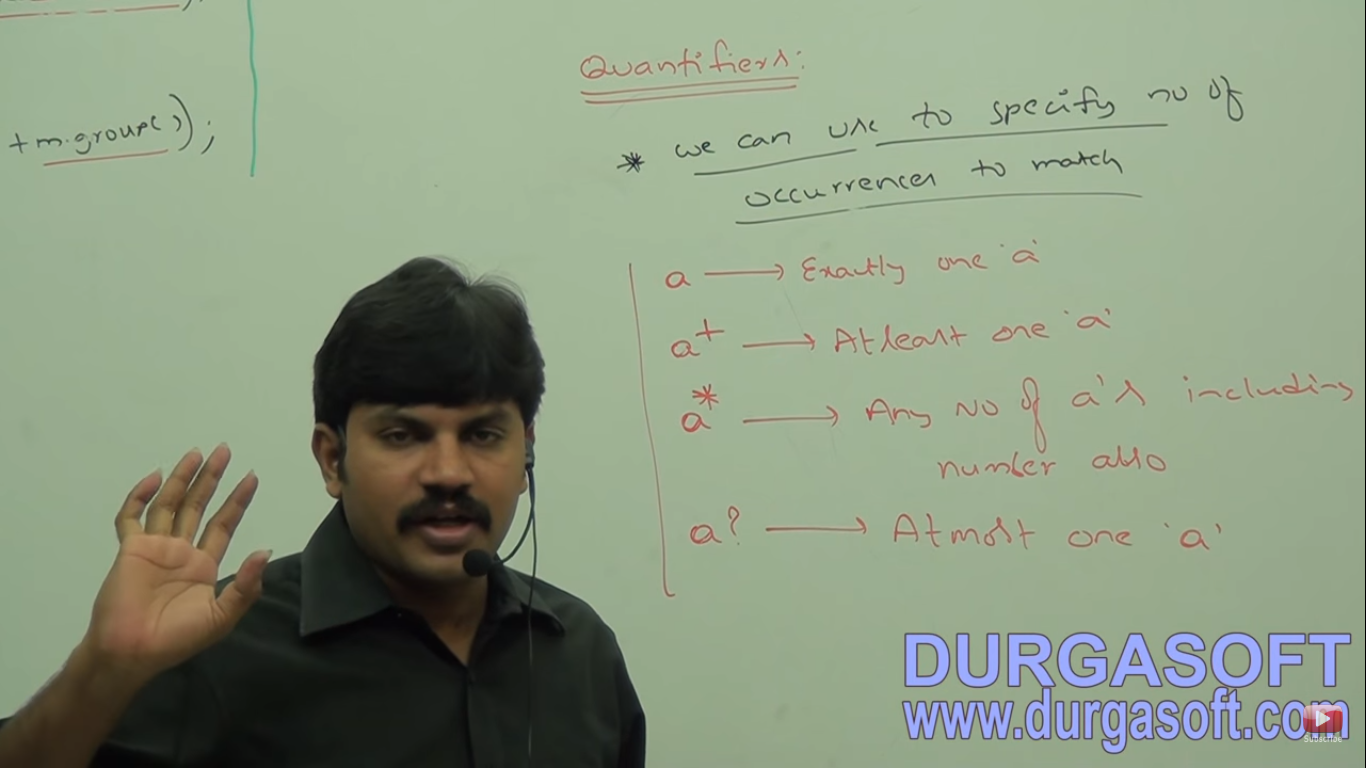 + m.group( ));
Quantifiers:
* we can use to specify no of
occurrences to match
a → Exactly one 'a'
a+ → Atleast one 'a'
a* → Any No of a's including
number also
a? → Atmost one 'a'
DURGASOFT
www.durgasoft.com
Subscribe